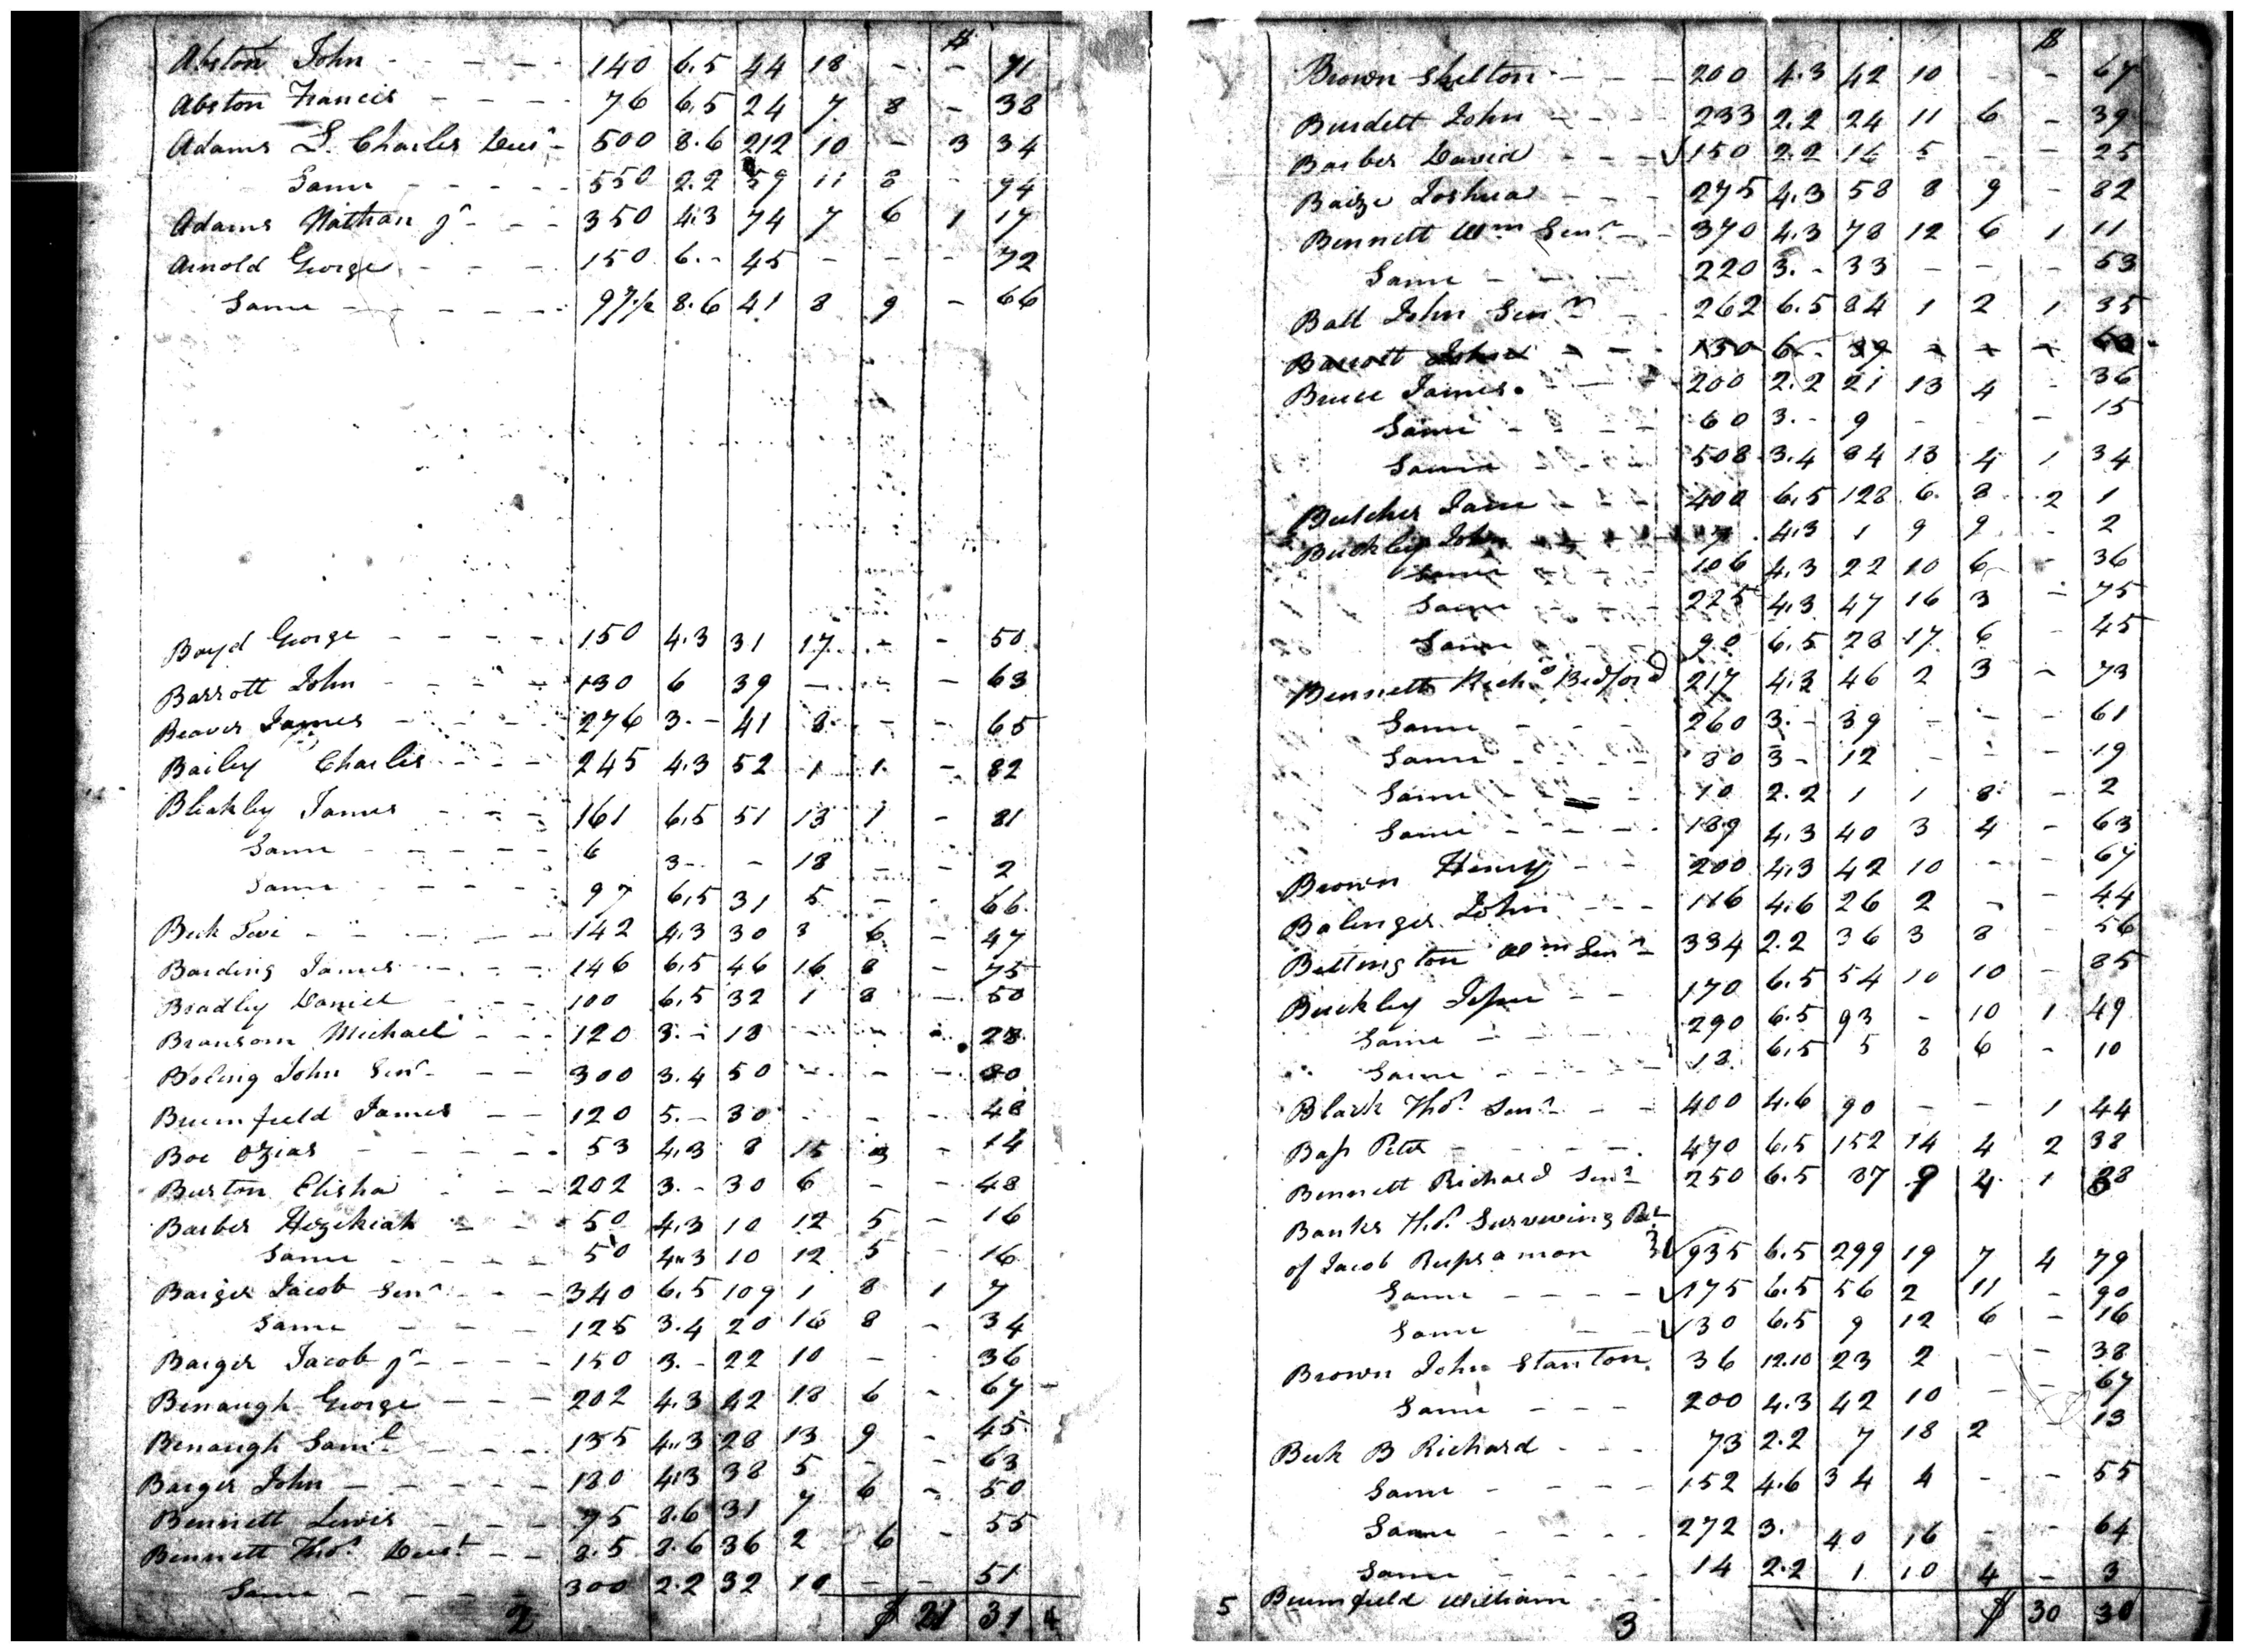 $
Abston John - - - - - 140 6.5 44 18 - - 71
Abston Francis - - - - 76 6.5 24 7 8 - 38
Adams L. Charles Decr - 500 8.6 212 10 - 3 34
Same - - - - 550 2.2 59 11 8 - 94
Adams Nathan Jr - - - 350 4.3 74 7 6 1 17
Arnold George - - - 150 6.- 45 - - - 72
Same - - - - - 97½ 8.6 41 8 9 - 66
Boyd George - - - - 150 4.3 31 17 - - 50
Barrott John - - - - 130 6 39 - - - 63
Beaver James - - - - 276 3.- 41 8 - - 65
Bailey Charles - - - 245 4.3 52 1 1 - 82
Bleakley James - - - 161 6.5 51 13 1 - 81
Same - - - - - 6 3- - 18 - - 2
Same - - - - 97 6.5 31 5 - - 66
Beck Levi - - - - - 142 4.3 30 3 6 - 47
Barding James - - - 146 6.5 46 16 8 - 75
Bradley Daniel - - - 100 6.5 32 1 8 - 50
Bransom Michael - - - 120 3.- 18 - - - 28
Boling John Senr - - - 300 3.4 50 - - - 80
Brumfield James - - 120 5.- 30 - - - 48
Boe Ozias - - - - - 53 4.3 8 15 3 - 14
Burton Elisha - - - 202 3.- 30 6 - - 48
Barber Hezekiah - - 50 4.3 10 12 5 - 16
Same - - - - 50 4.3 10 12 5 - 16
Barger Jacob Senr - - - 340 6.5 109 1 8 1 7
Same - - - 125 3.4 20 16 8 - 34
Barger Jacob Jr - - - - 150 3.- 22 10 - - 36
Benaugh George - - - 202 4.3 42 18 6 - 67
Benaugh Saml - - - - 135 4.3 28 13 9 - 45
Barger John - - - - - 180 4.3 38 5 - - 63
Bennett Lewis - - - 75 8.6 31 7 6 - 50
Bennett Thos. Dest - - 8.5 8.6 36 2 6 - 55
Same - - - - 300 2.2 32 10 - - 51
2 $ 21 31
$
Brown Skelton - - - 200 4.3 42 10 - - 67
Burdett John - - - - 233 2.2 24 11 6 - 39
Barber David - - - √ 150 2.2 16 5 - - 25
Baize Joshua - - - 275 4.3 58 8 9 - 82
Bennett Wm Senr - - 370 4.3 78 12 6 1 11
Same - - - 220 3.- 33 - - - 53
Ball John Senr - - 262 6.5 84 1 2 1 35
Barrott John - - - 130 6.- 39 - - - 63
Bruce James - - - 200 2.2 21 13 4 - 36
Same - - - - 60 3.- 9 - - - 15
Same - - - 508 3.4 84 13 4 1 34
Butcher Jane - - - 400 6.5 128 6 8 2 1
Buckley John - - - 7 4.3 1 9 9 - 2
Same - - - 106 4.3 22 10 6 - 36
Same - - - 225 4.3 47 16 3 - 75
Same - - - 90 6.5 28 17 6 - 45
Bennett Richd Bedford 217 4.3 46 2 3 - 73
Same - - - 260 3.- 39 - - - 61
Same - - - - 80 3- 12 - - - 19
Same - - - 10 2.2 1 1 8 - 2
Same - - - - 189 4.3 40 3 4 - 63
Brown Henry - - 200 4.3 42 10 - - 67
Balinger John - - - 116 4.6 26 2 - - 44
Bettington Wm Senr - 334 2.2 36 3 8 - 56
Buckley - - 170 6.5 54 10 10 - 85
Same - - - 290 6.5 93 - 10 1 49
Same - - - - 18 6.5 5 8 6 - 10
Black Thos. Senr - - 400 4.6 90 - - 1 44
Bass Peter - - - - 470 6.5 152 14 4 2 38
Bennett Richard Senr 250 6.5 87 9 4 1 38
Banks Thos. Surviving Par
of Jacob √ 935 6.5 299 19 7 4 79
Same - - - - √ 175 6.5 56 2 11 - 90
Same - - √ 30 6.5 9 12 6 - 16
Brown John Stanton 36 12.10 23 2 - - 38
Same - - - 200 4.3 42 10 - - 67
Beck B Richard - - - 73 2.2 7 18 2 - 13
Same - - - - 152 4.6 34 4 - - 55
Same - - - - 272 3. 40 16 - - 64
Same - - - - 14 2.2 1 10 4 - 3
5 Brumfield William - -
3 $ 30 30